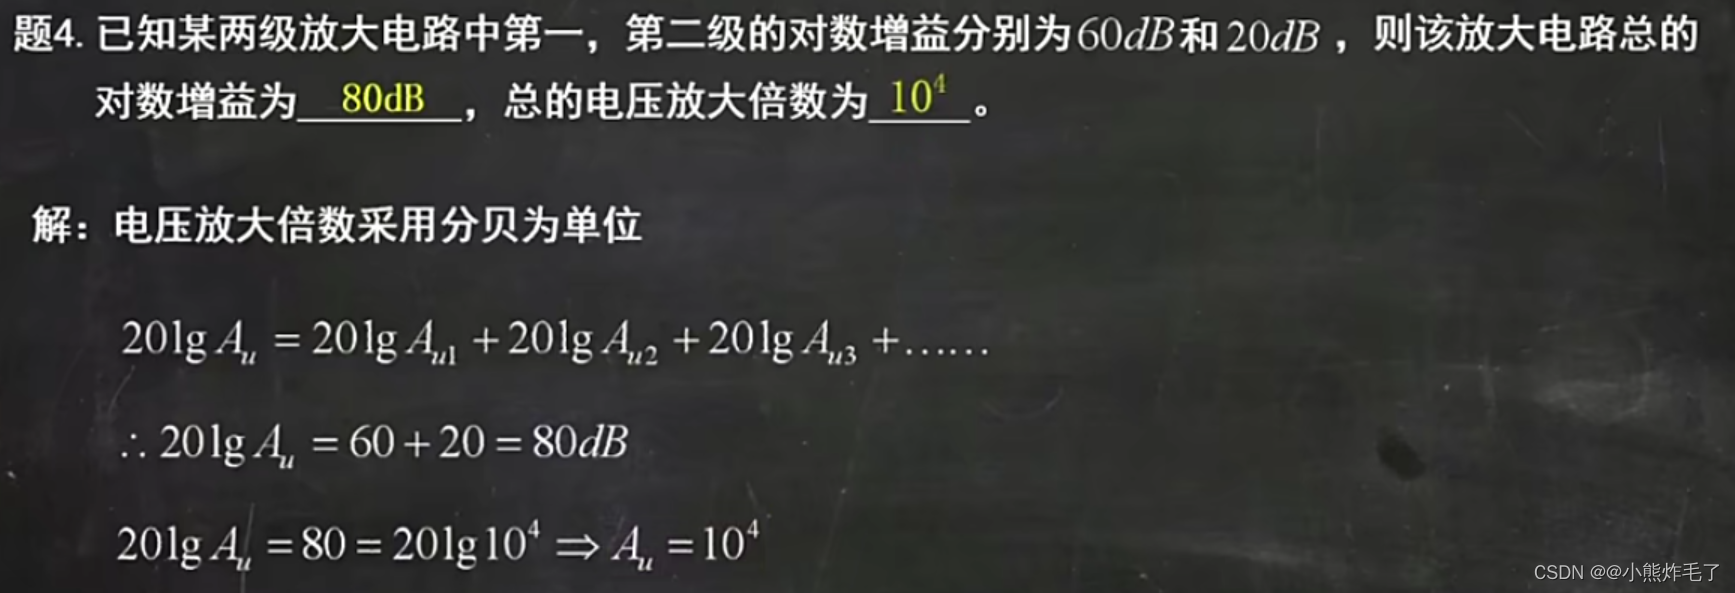 题4. 已知某两级放大电路中第一，第二级的对数增益分别为60dB和20dB，则该放大电路总的
对数增益为 80dB ，总的电压放大倍数为 10⁴ 。
解：电压放大倍数采用分贝为单位
20lg Aᵤ = 20lg Aᵤ₁ + 20lg Aᵤ₂ + 20lg Aᵤ₃ +……
∴ 20lg Aᵤ = 60 + 20 = 80dB
20lg Aᵤ = 80 = 20lg10⁴ ⇒ Aᵤ = 10⁴
CSDN @@小熊炸毛了